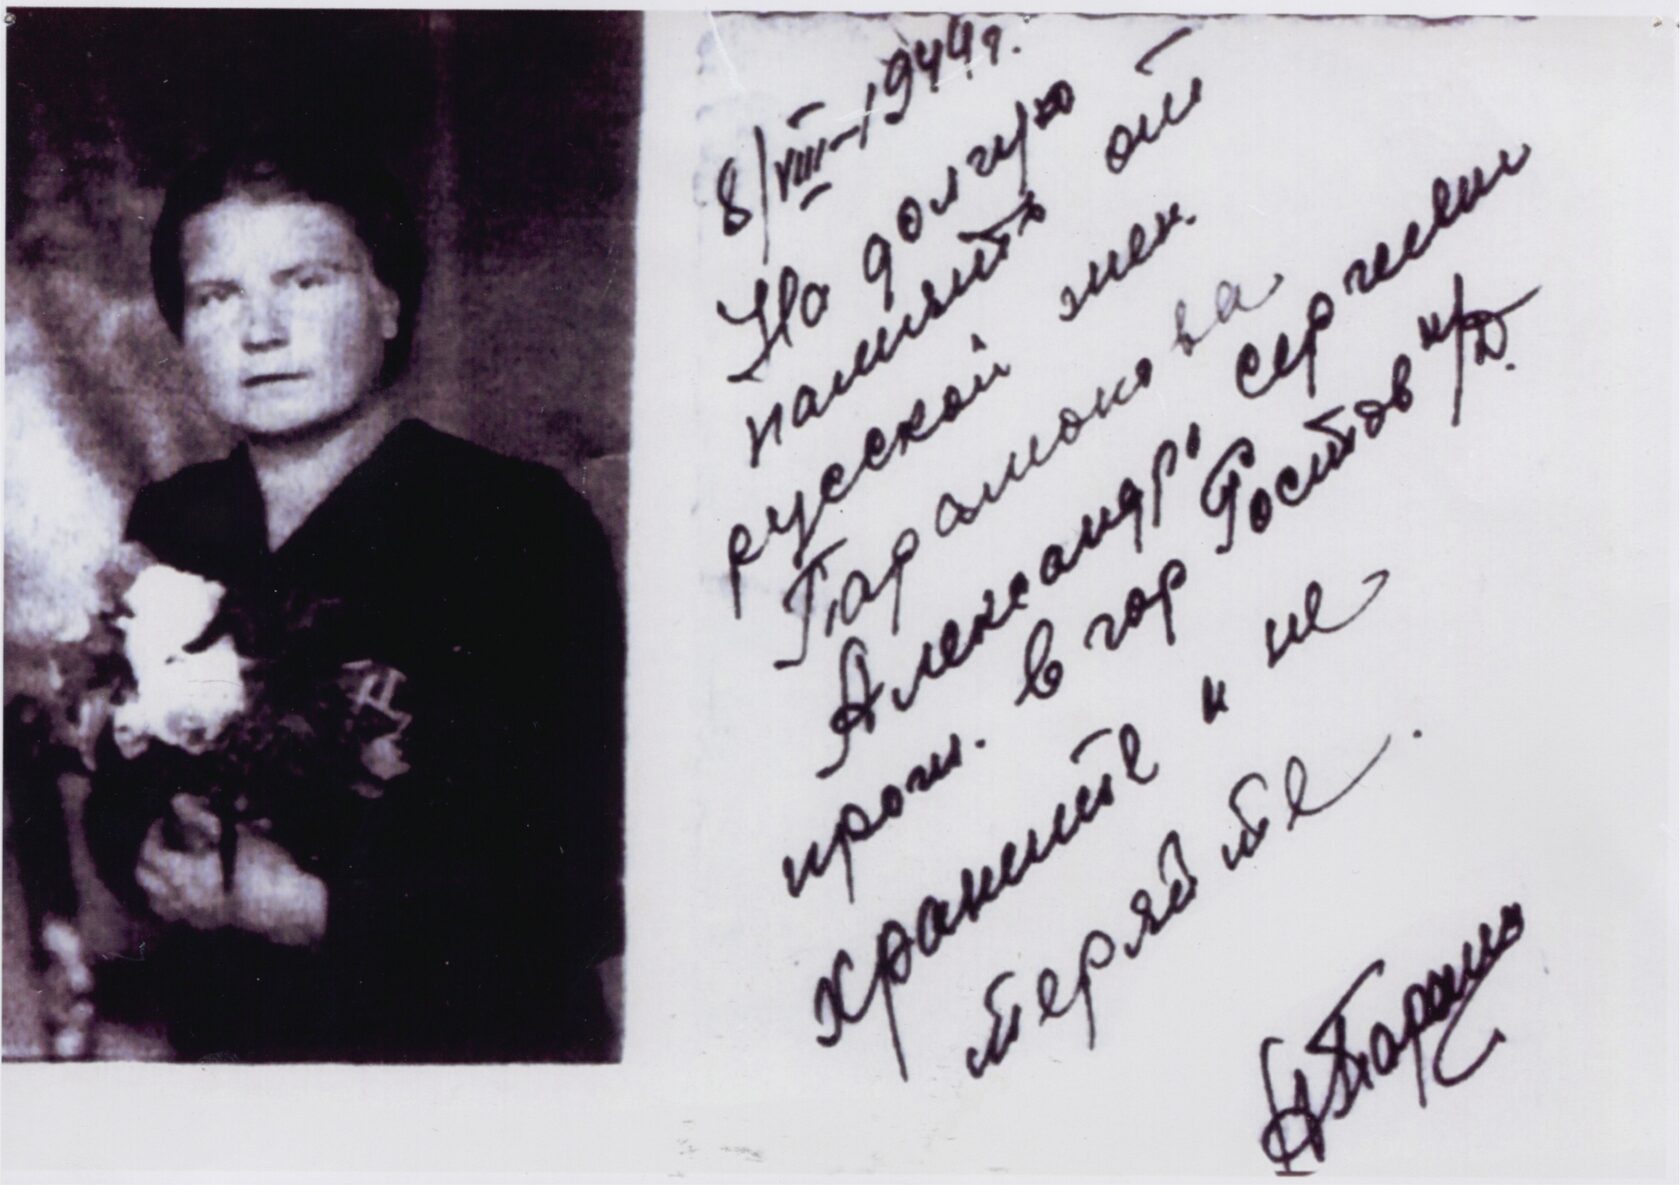 8/VIII-1944г.
На долгую
память от
русской жен.
Парамонова
Александра Сергеевн
прож. в гор Ростов н/Д.
храните и не
теряйте.